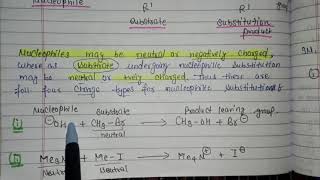 Nucleophile R' R'
substrate substitution
product
Nucleophiles may be neutral or negatively charged,
where as substrate undergoing nucleophilic substitution
may be neutral or +vely charged, thus there are
four charge types for nucleophilic substitution
Nucleophile Substrate Product leaving group.
(i) ⊖OH + CH₃-Br → CH₃-OH + Br⊖
neutral
(ii) Me₃N + Me-I → Me₄N⊕ + I⊖
Neutral neutral